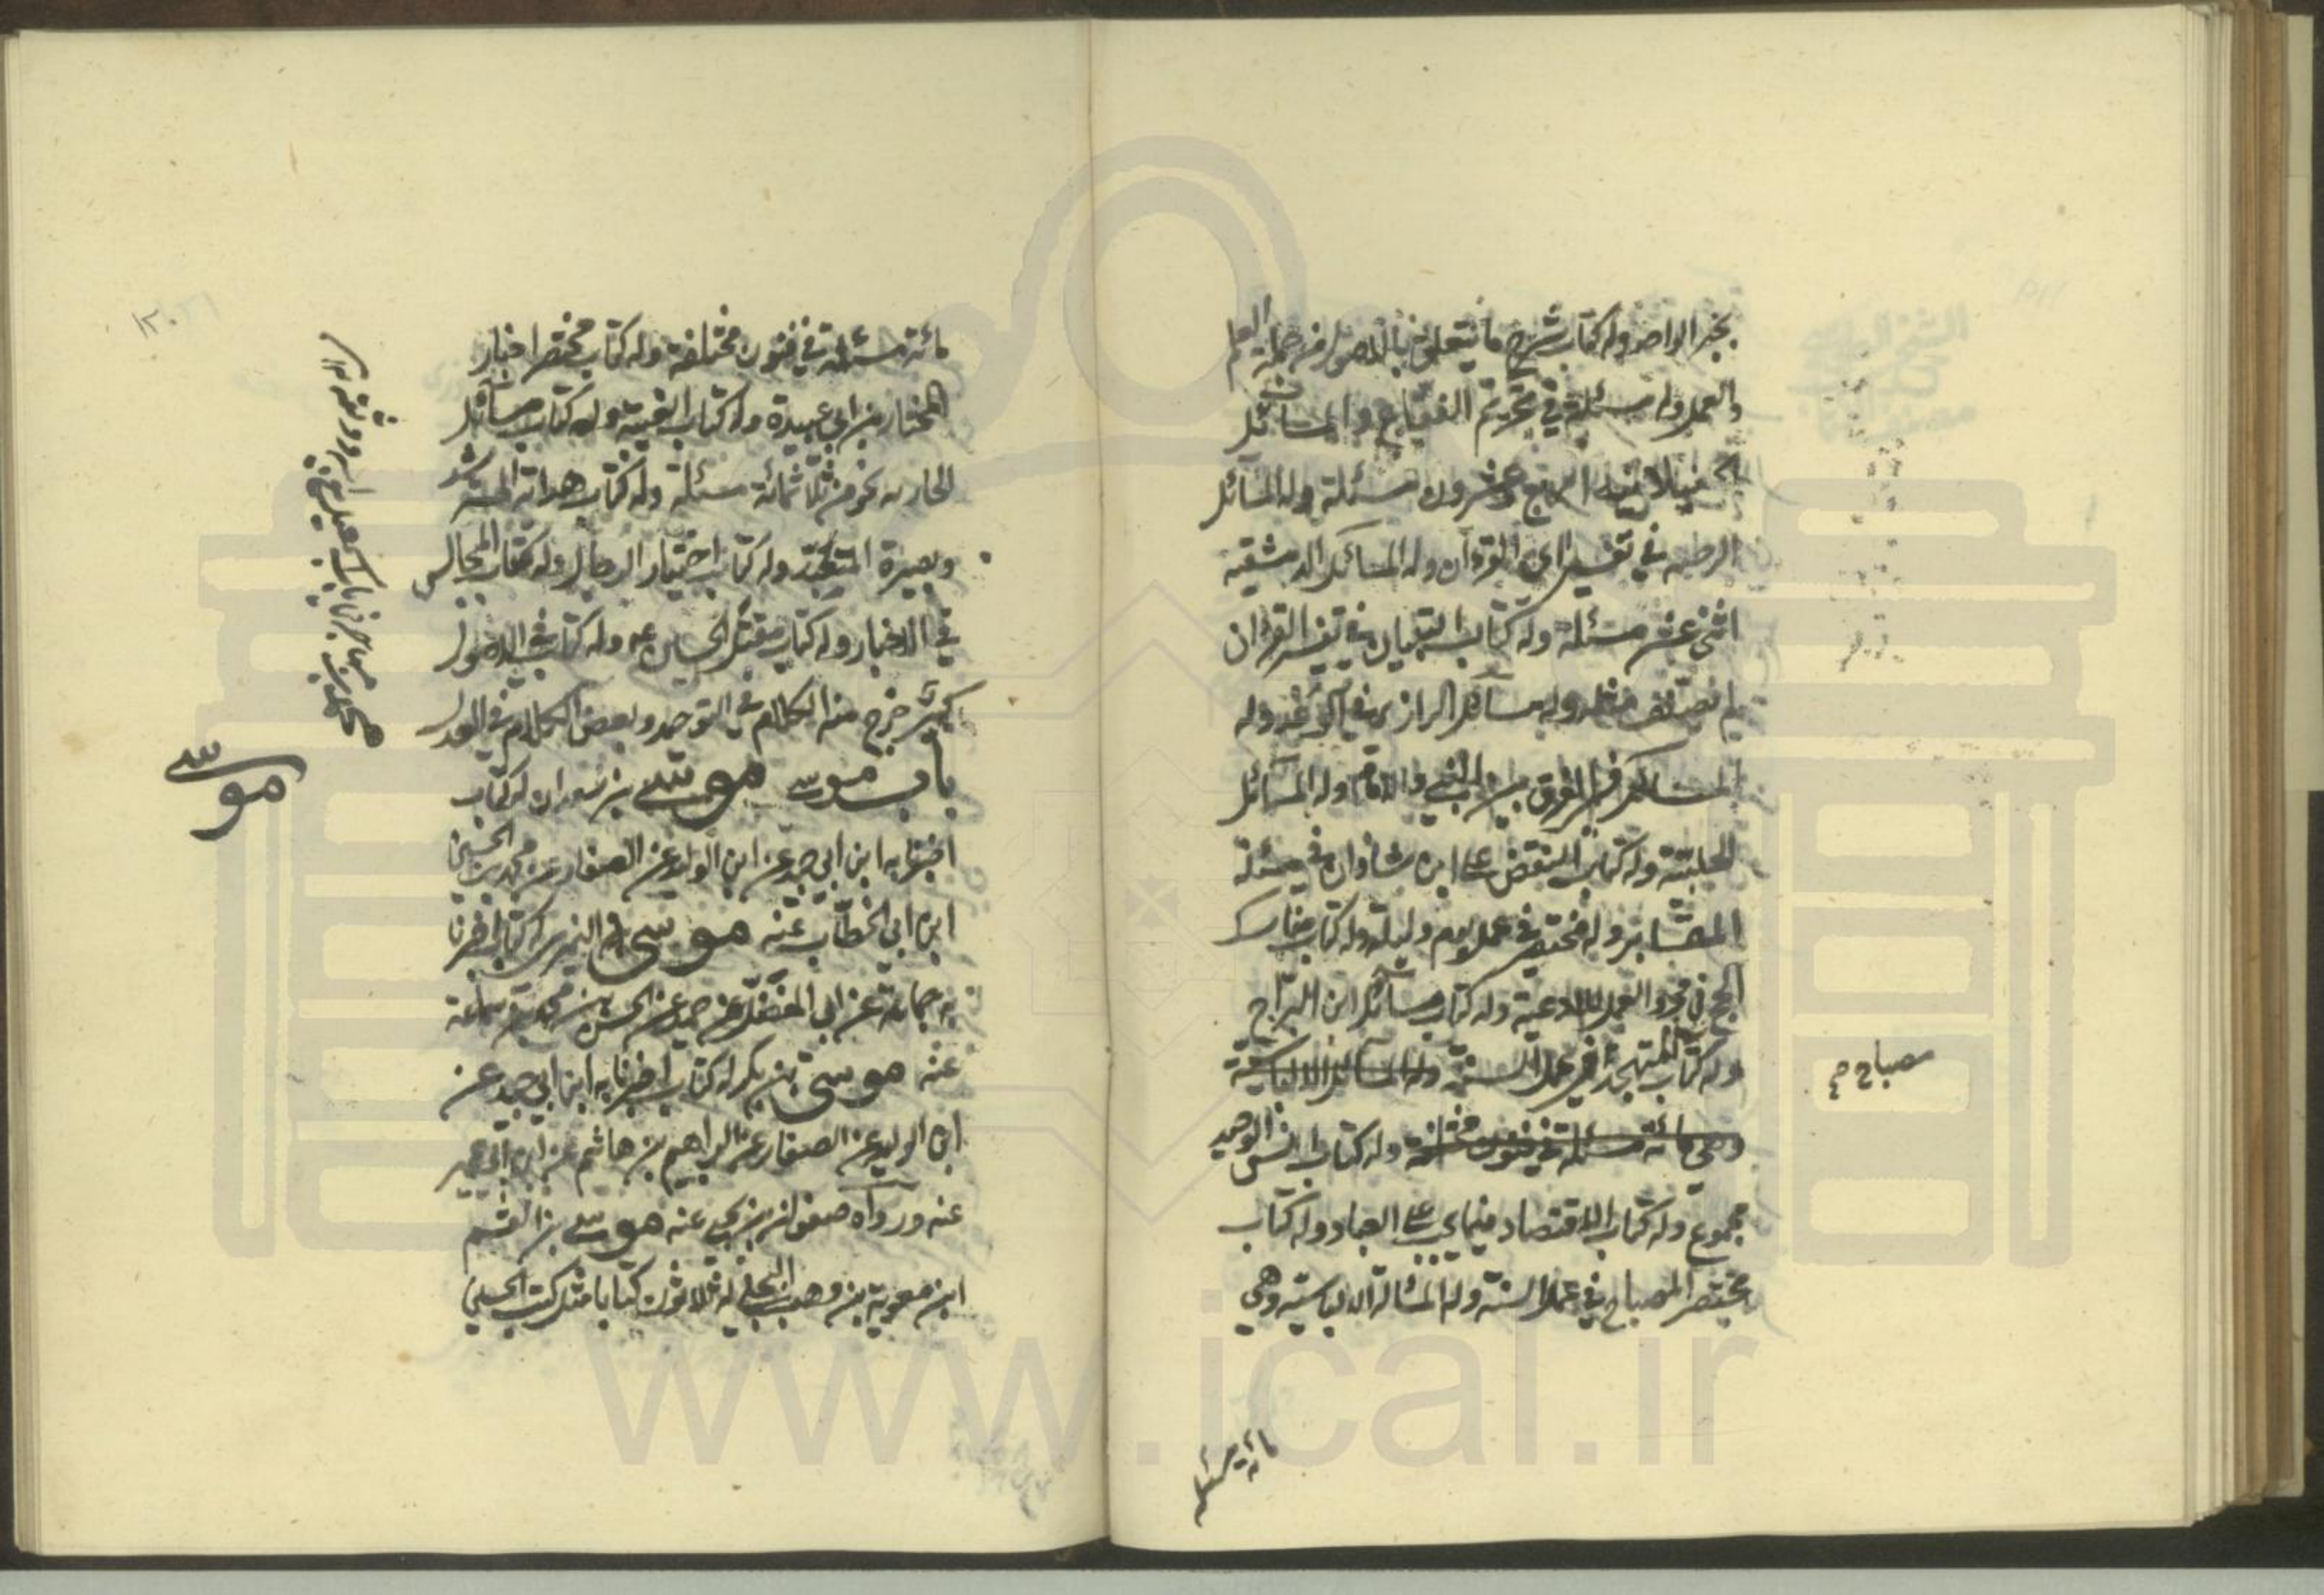 بخبر الواحد وله كتاب شرح ما يتعلق بالاصول من جمل العلم
والعمل وله مسئلة في تحريم الفقاع والمسائل
الجنبلائية اربع وعشرون مسئلة وله المسائل
الرجبيه في تفسير اي القرءآن وله المسائل الدمشقيه
اثنى عشر مسئلة وله كتاب التبيان في تفسير القرءان
لم يصنف مثله وله مسائل الرازيه في الوعيد وله
المسائل في الفرق بين النبي والامام وله المسائل
الحلبية وله كتاب النقض على ابن شاذان في مسئلة
الغار وله مختصر في عمل يوم وليلة وله كتاب مناسك
الحج في مجرد العمل والادعية وله كتاب مسائل ابن البراج
وله كتاب المتهجد في عمل السنة وله المسائل الالياسية
وهي مائة مسئلة في فنون مختلفة وله كتاب انس الوحيد
مجموع وله كتاب الاقتصاد فيما يجب على العباد وله كتاب
مختصر المصباح في عمل السنة وله المسائل الالياسية وهي
مصباح
مائة مسئلة
مائة مسئلة في فنون مختلفة وله كتاب مختصر اخبار
المختار بن ابي عبيدة وله كتاب الغيبة وله كتاب مسائل
الحاريه نحو من ثلاثمائة مسئلة وله كتاب هداية المسترشد
وبصيرة المتعبد وله كتاب اختيار الرجال وله كتاب المجالس
في الاخبار وله كتاب مقتل الحسين ع وله كتاب في الاصول
كبير خرج منه الكلام في التوحيد وبعض الكلام في العدل
باب موسى موسى بن سعدان له كتاب
اخبرنا به ابن ابي جيد عن ابن الوليد عن الصفار عن محمد بن الحسين
ابن ابي الخطاب عنه موسى النميري له كتاب اخبرنا
به جماعة عن ابي المفضل عن حميد عن الحسن بن محمد بن سماعة
عنه موسى بن بكر له كتاب اخبرنا به ابن ابي جيد عن
ابن الوليد عن الصفار عن ابراهيم بن هاشم عن ابن ابي عمير
عنه ورواه صفوان بن يحيى عنه موسى بن القسم
ابن معوية بن وهب البجلي له ثلاثون كتابا مثل كتب الحسين
موسى
www.ical.ir